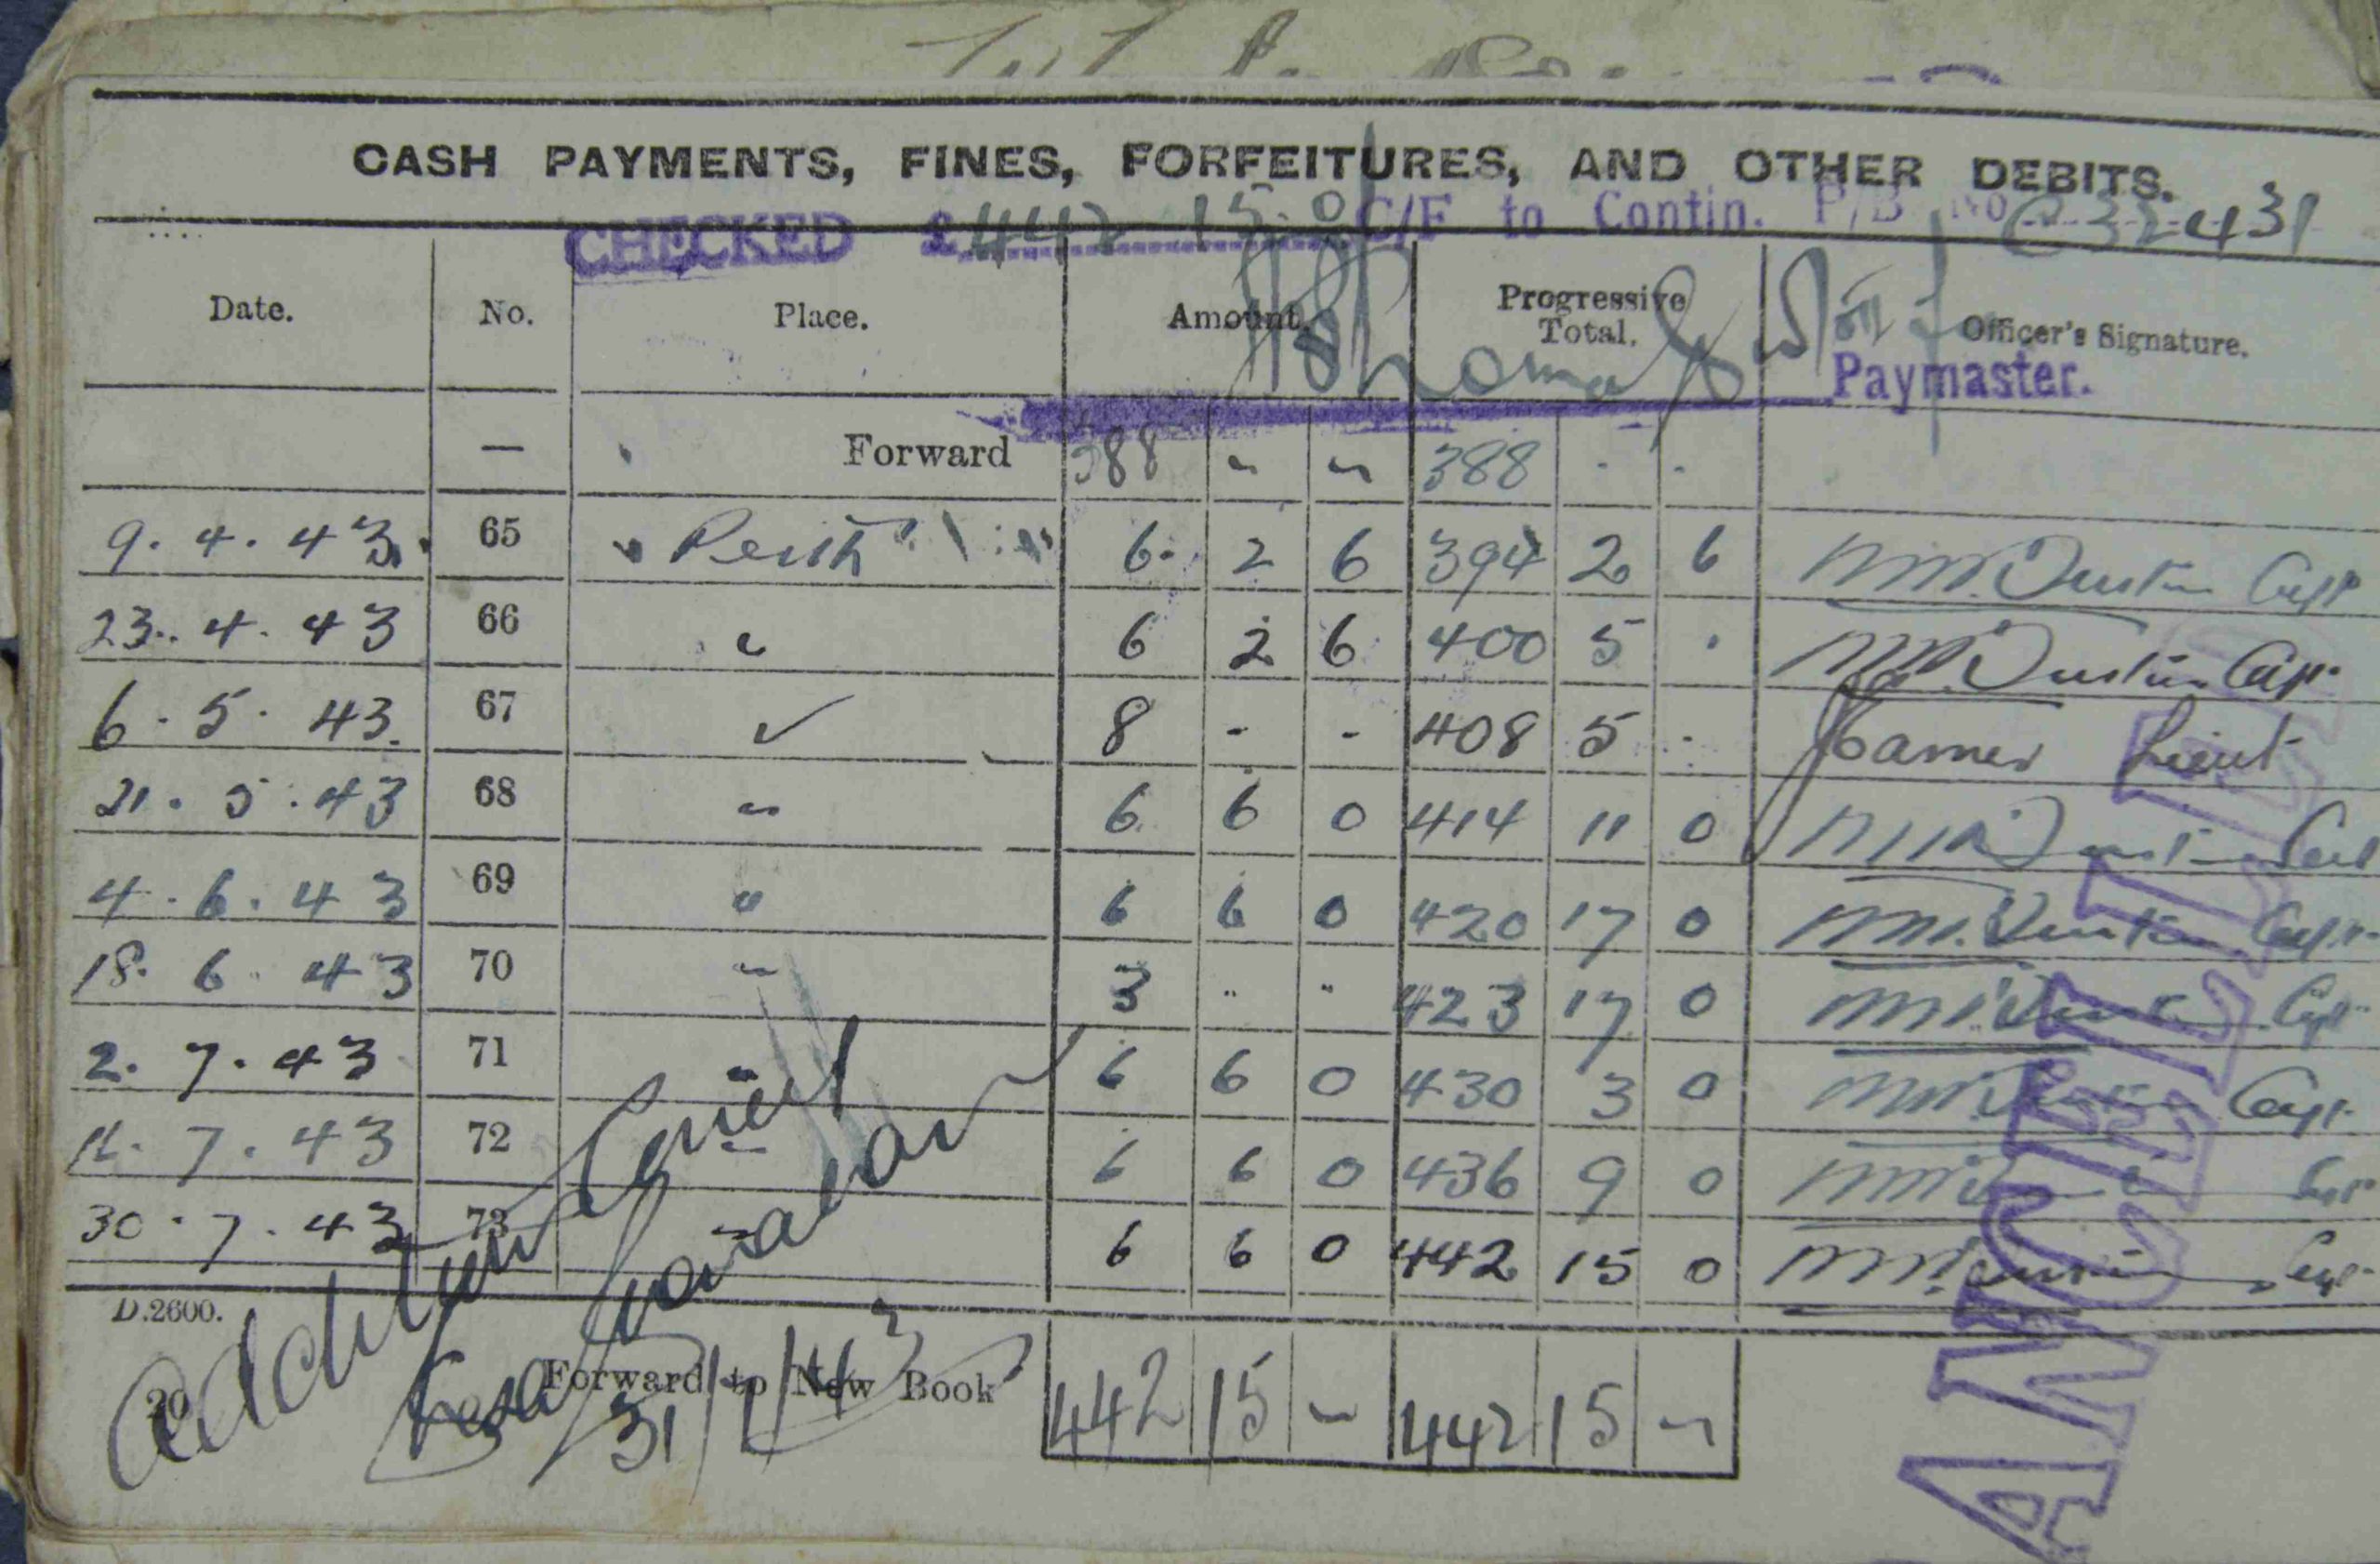 CASH PAYMENTS, FINES, FORFEITURES, AND OTHER DEBITS.
CHECKED £442 15. 0 C/F to Contin. P/B No C32431
Date. No. Place. Amount. Progressive Total. Officer's Signature.
Paymaster.
— Forward 388 " " 388 . .
9. 4. 43. 65 " Perth 6. 2 6 394 2 6 Capt
23. 4. 43 66 " 6 2 6 400 5 . Capt.
6. 5. 43. 67 " 8 - - 408 5 - Lieut
21. 5. 43 68 " 6 6 0 414 11 0
4. 6. 43 69 " 6 6 0 420 17 0 Capt.
18. 6 43 70 " 3 " " 423 17 0 Capt.
2. 7. 43 71 " 6 6 0 430 3 0 Capt.
16. 7. 43 72 " 6 6 0 436 9 0 Capt
30. 7. 43 73 " 6 6 0 442 15 0 Capt.
D.2600.
20
Forward to New Book 442 15 - 442 15 -
31/7/43
CANCELLED